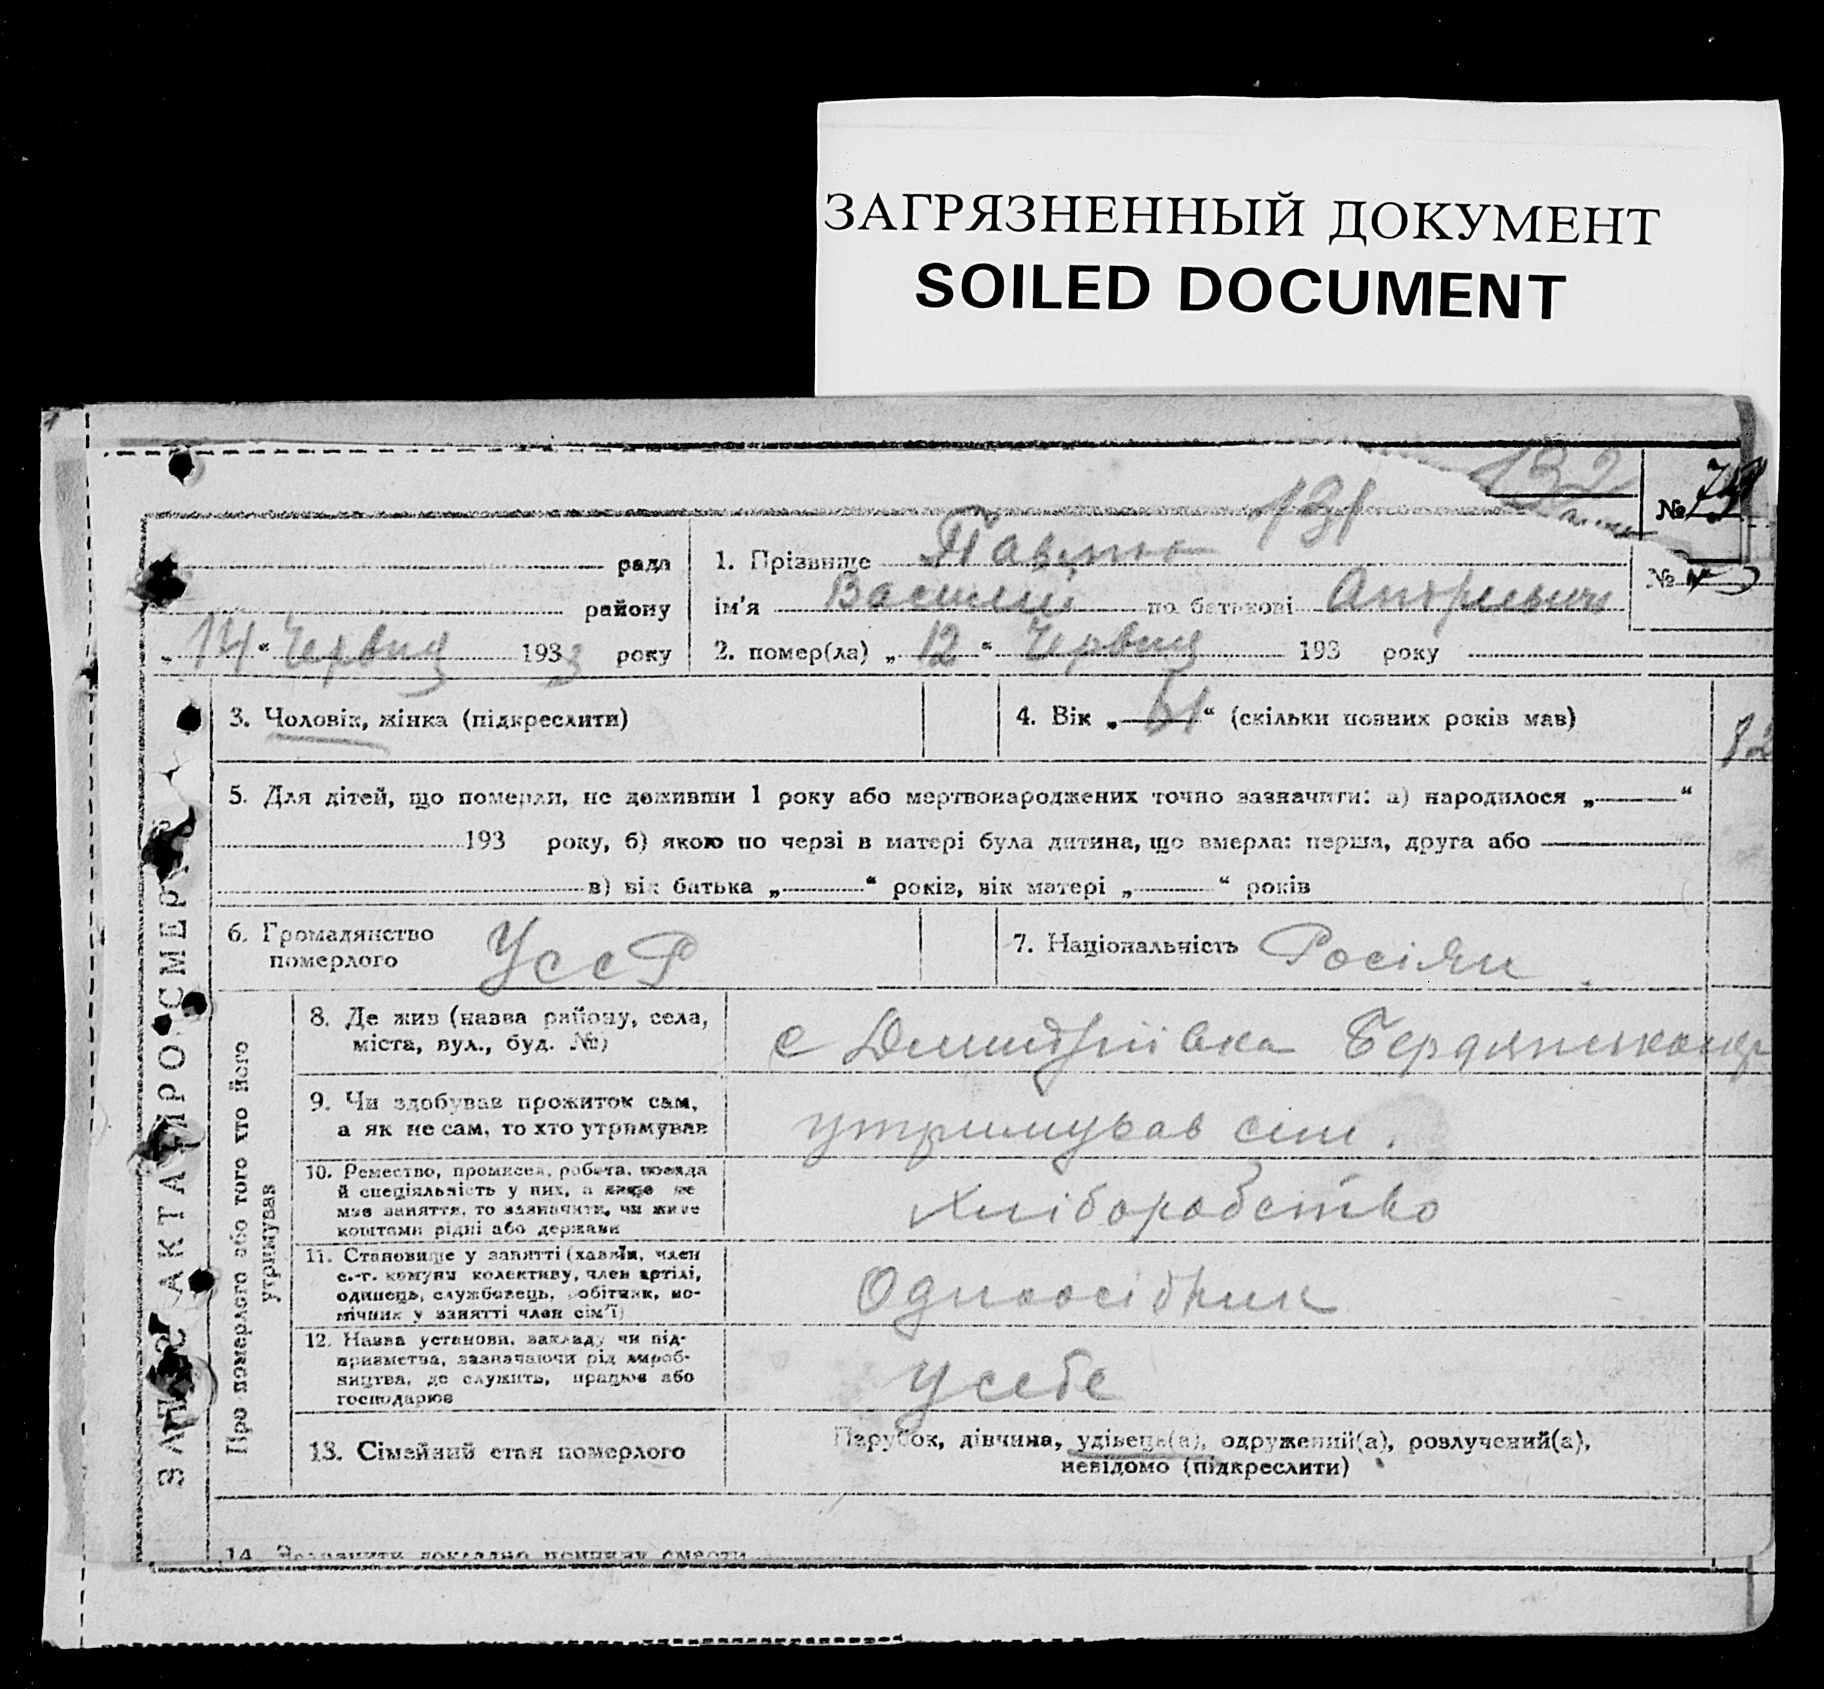 ЗАГРЯЗНЕННЫЙ ДОКУМЕНТ
SOILED DOCUMENT
132
№
131
рада
району
„ 14 “ Червня 1933 року
1. Прізвище
ім'я Василий по батькові Андреевич
2. помер(ла) „ 12 “ Червня 193 року
№
ЗАПИС АКТА ПРО СМЕР
3. Чоловік, жінка (підкреслити)
4. Вік „ 61 “ (скільки повних років мав)
82
5. Для дітей, що померли, не доживши 1 року або мертвонароджених точно зазначити: а) народилося „ “
193 року, б) якою по черзі в матері була дитина, що вмерла: перша, друга або
в) вік батька „ “ років, вік матері „ “ років
6. Громадянство
померлого
УССР
7. Національність Росіян
Про померлого або того хто його
утримував
8. Де жив (назва району, села,
міста, вул., буд. №)
с Дмитріївка
9. Чи здобував прожиток сам,
а як не сам, то хто утримував
утримував син.
10. Ремество, промисел, робота, посада
й спеціяльність у них, а якщо не
мав заняття, то зазначити, чи живе
коштами рідні або держави
Хліборобство
11. Становище у занятті (хазяїн, член
с.-г. комуни колективу, член артілі,
одинець, службовець, робітник, по-
мічник у занятті член сім'ї)
Одноосібник
12. Назва установи, закладу чи під-
приємства, зазначаючи рід вироб-
ництва, де служить, працює або
господарює
У себе
13. Сімейний стан померлого
Парубок, дівчина, удівець(а), одружений(а), розлучений(а),
невідомо (підкреслити)
14. Зазначити докладно причину смерти